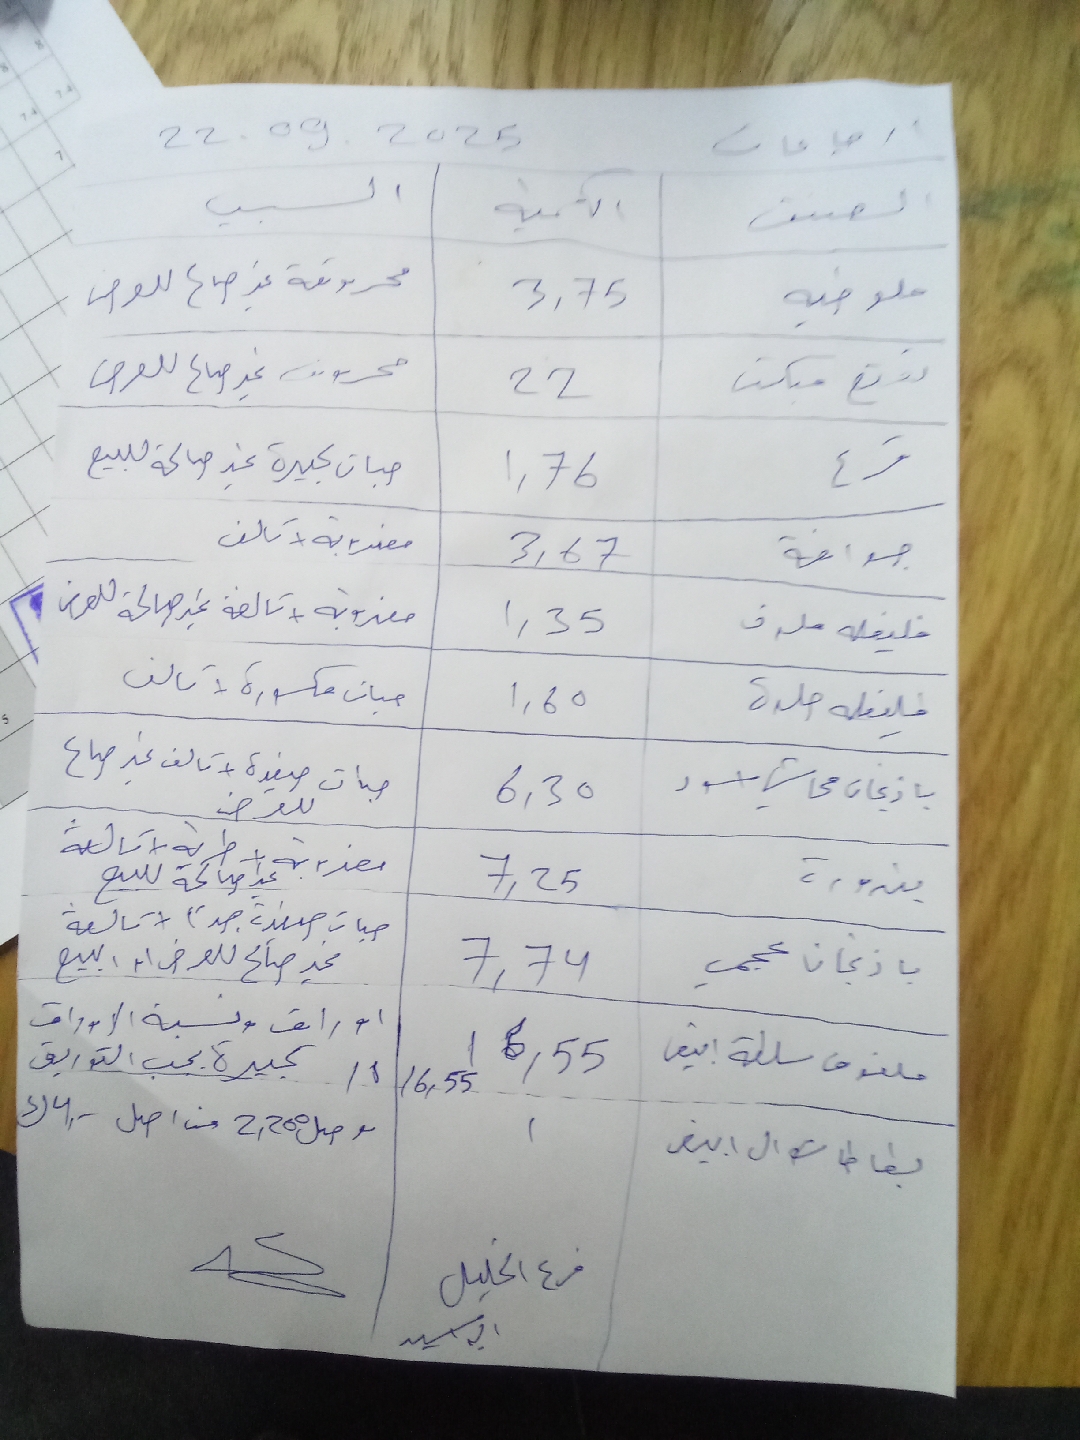 ارجاعات 22.09.2025
الصنف الكمية السبب
ملوخيه 3,75 محروقة غير صالح للعرض
نعنع مبكت 22 محروق غير صالح للعرض
قرع 1,76 حبات كبيرة غير صالحة للبيع
جوافة 3,67 مضروبة + تالف
فليفله ملوف 1,35 مضروبة + تالفة غير صالحة للعرض
فليفله حلوة 1,60 حبات مكسورة + تالف
باذنجان محاشي اسود 6,30 حبات صغيرة + تالف غير صالح
للعرض
بندورة 7,25 مضروبة + طرية + تالفة
غير صالحة للبيع
باذنجان عجمي 7,74 حبات صغيرة جداً + تالفة
غير صالح للعرض او البيع
ملفوف سلطة ابيض 16,55 اوراق ونسبة الاوراق
16,55 كبيرة بحب التوريق
بطاطا شوال ابيض 1 وصل 2,200 من اصل 4,-
فرع الخليل